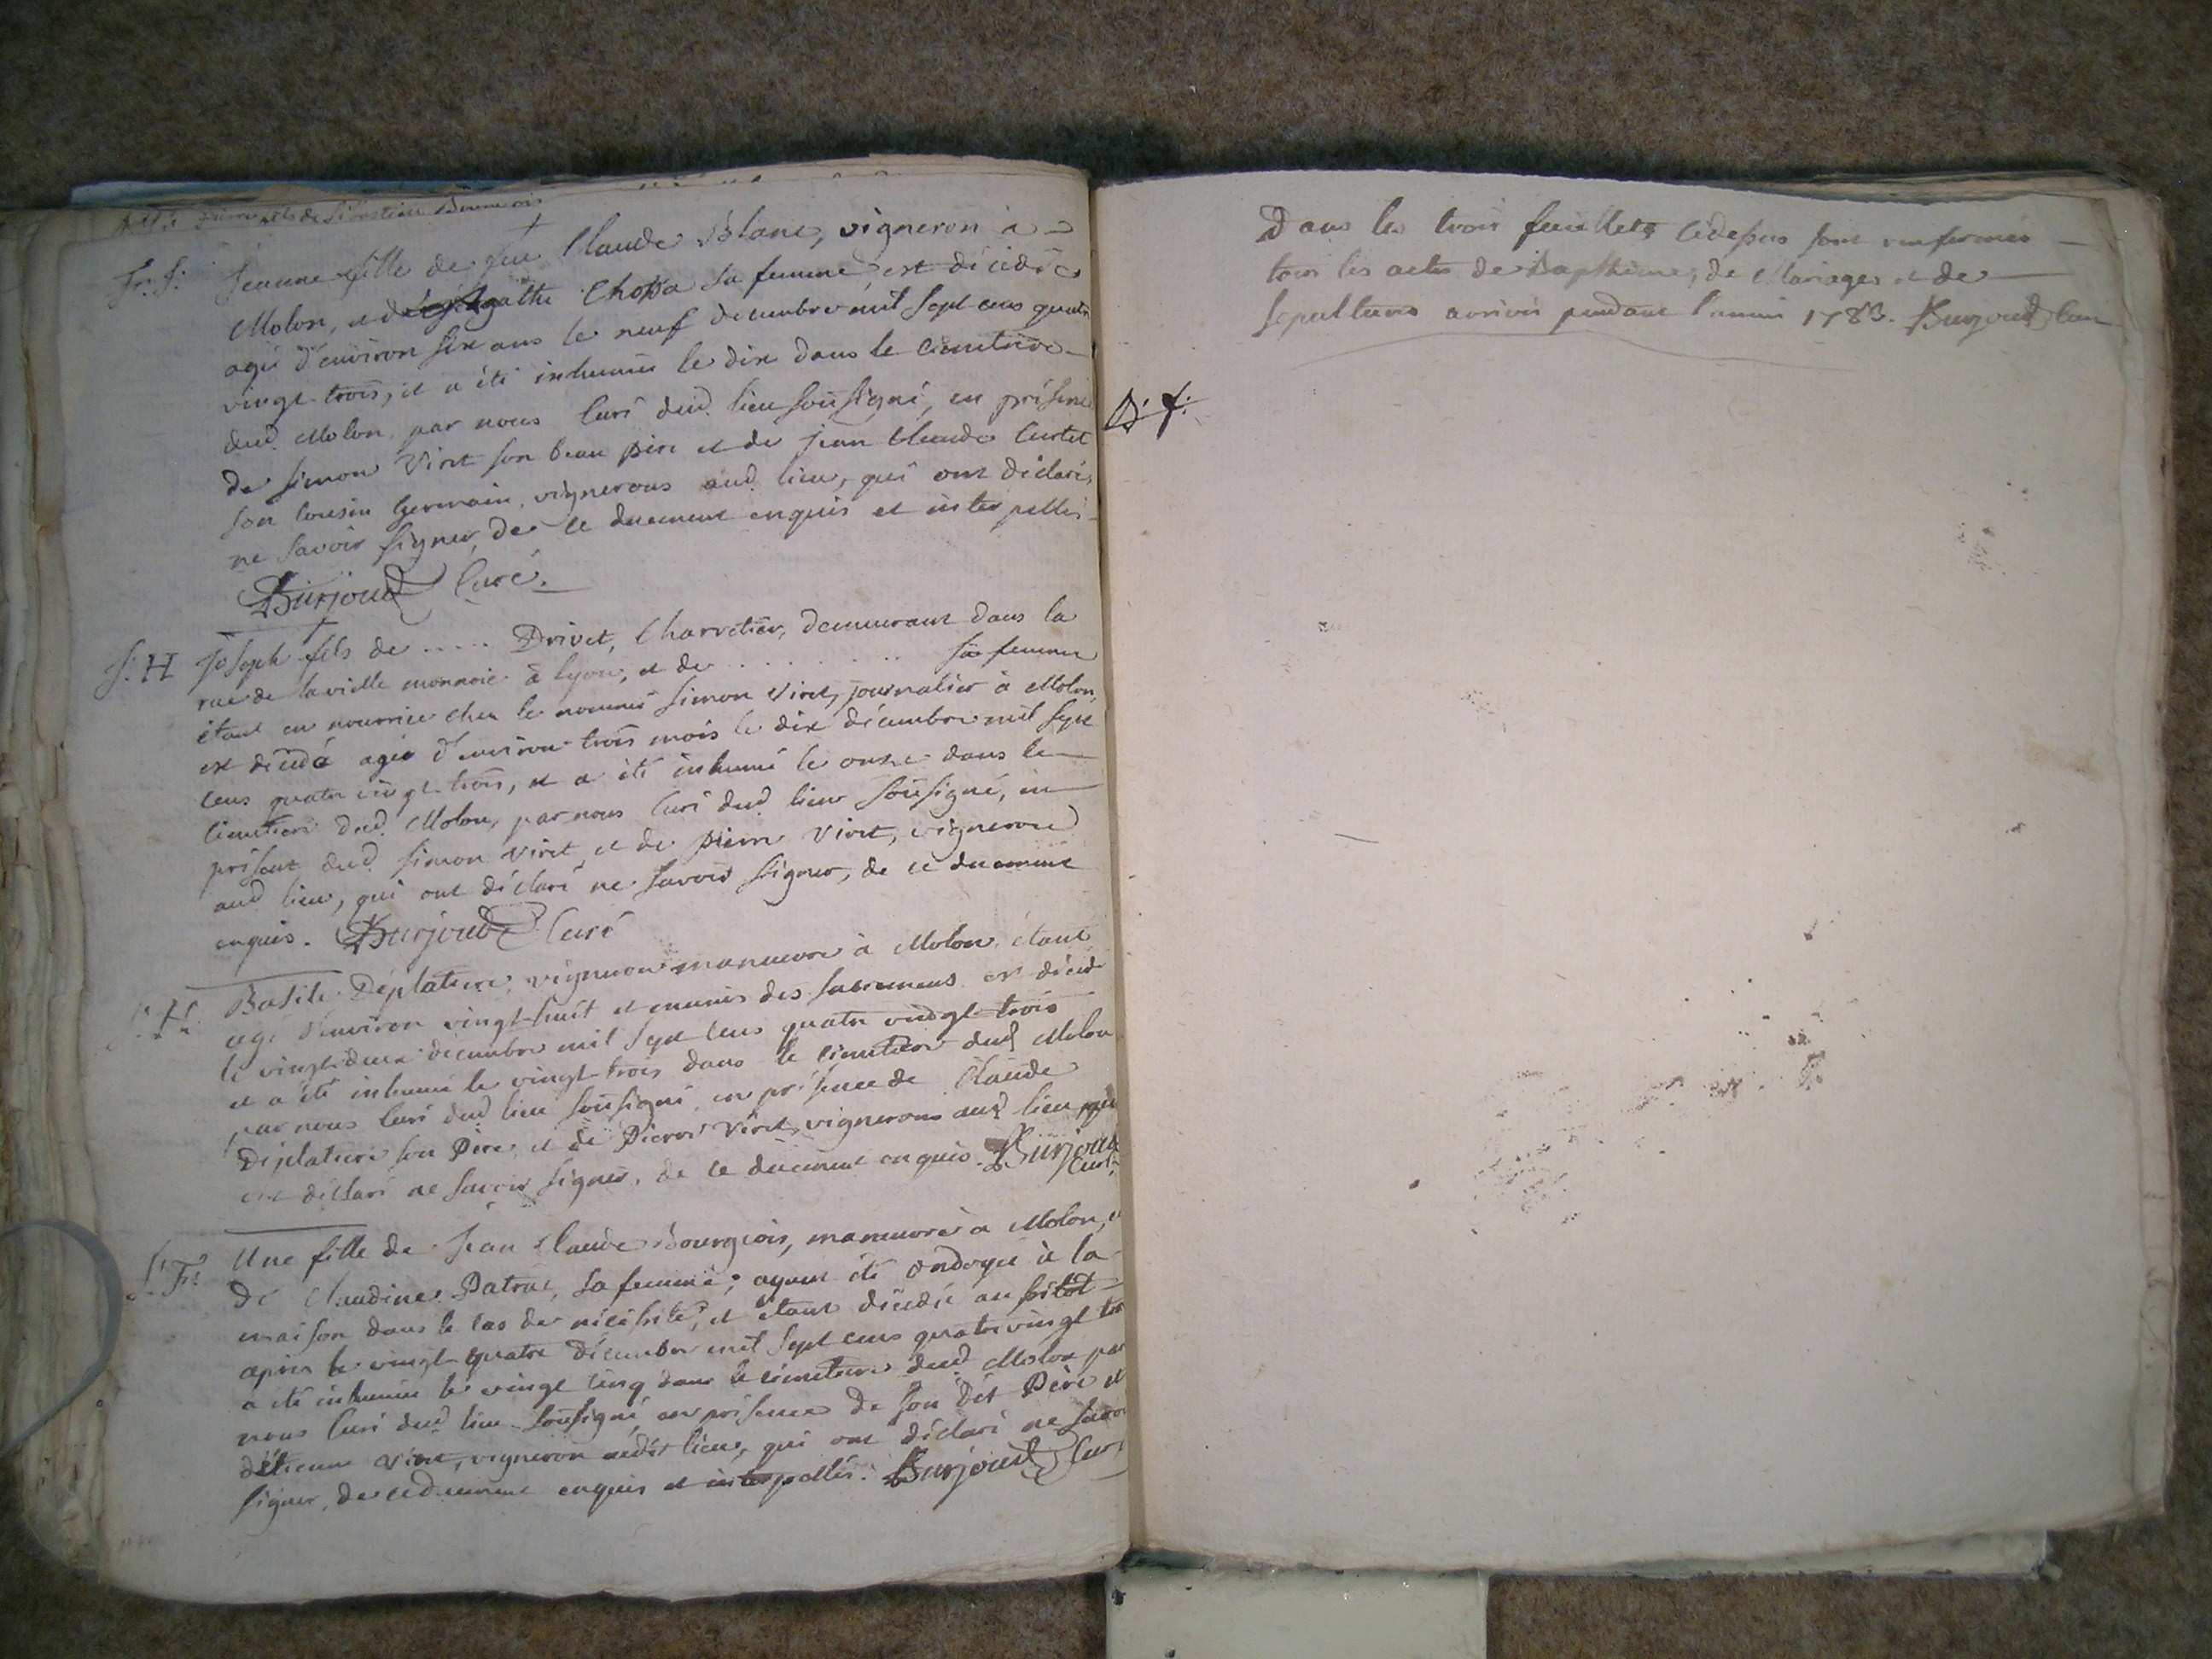 S. F. Jeanne fille de feu Claude Blanc, vigneron à
Molon, et de Agathe Choppa sa femme, est décédée
agée d'environ six ans le neuf decembre mil sept cens quatre
vingt trois, et a été inhumée le dix dans le cimetiere
dud. Molon, par nous Curé dud. lieu soussigné, en présence
de simon Viret son beau pere et de jean Claude Curtet
son Cousin Germain, vignerons aud. lieu, qui ont déclarés
ne savoir signer, de ce duement enquis et interpellés
Burjoud Curé.
S. H Joseph fils de ..... Drivet, Charretier, demeurant dans la
rue de la vielle monnoie à Lyon, et de .......... sa femme
étant en nourrice chez le nommé simon Viret, journalier à Molon,
est décédé agé d'environ trois mois le dix décembre mil sept
cens quatre vingt trois, et a été inhumé le onze dans le
cimetiere dud. Molon, par nous Curé dud. lieu soussigné, en
présence dud. simon viret, et de pierre viret, vigneron
aud lieu, qui ont déclaré ne savoir signer, de ce duement
enquis. Burjoud Curé
S. H. Basile Déplature, vigneron manuevre à Molon, étant
agé d'environ vingt-huit et munis des sacremens est décédé
le vingt deux décembre mil sept cens quatre vingt trois
et a été inhumé le vingt-trois dans le cimetiere dud Molon
par nous Curé dud lieu soussigné, en présence de Claude
Déplature son Pere, et de Pierre Viret, vignerons aud lieu qui
ont déclaré ne savoir signer, de ce duement enquis. Burjoud
Curé
S. F. Une fille de Jean Claude Bourgeois, manuvre à Molon, et
de Claudine Patrac, sa femme; ayant été ondoyée à la
maison dans le cas de nécéssité, et étant décédée aussitôt
après le vingt-quatre Décembre mil sept cens quatre vingt trois
a été inhumée le vingt cinq dans le cimetiere dud Molon par
nous Curé dud lieu soussigné, en présence de son dit Père et
d'étienne Viret, vigneron audit lieu, qui ont déclaré ne savoir
signer, de ce duement enquis et interpellés. Burjoud Curé
Dans les trois feuillets cidessus sont renfermés
tous les actes de Baptheme, de Mariages et de
Sepultures arrivés pendant l'année 1783. Burjoud Curé